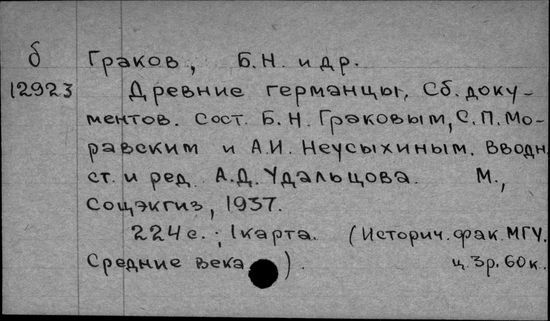 б Граков, Б.Н. и др.
12923 Древние германцы, Сб. доку-
ментов. Сост. Б.Н. Граковым, С.П. Мо-
равским и А.И. Неусыхиным. Вводн.
ст. и ред. А.Д. Удальцова. М.,
Соцэкгиз, 1937.
224 с.; 1 карта. (Историч. фак. МГУ.
Средние века ). ц. 3р. 60к.